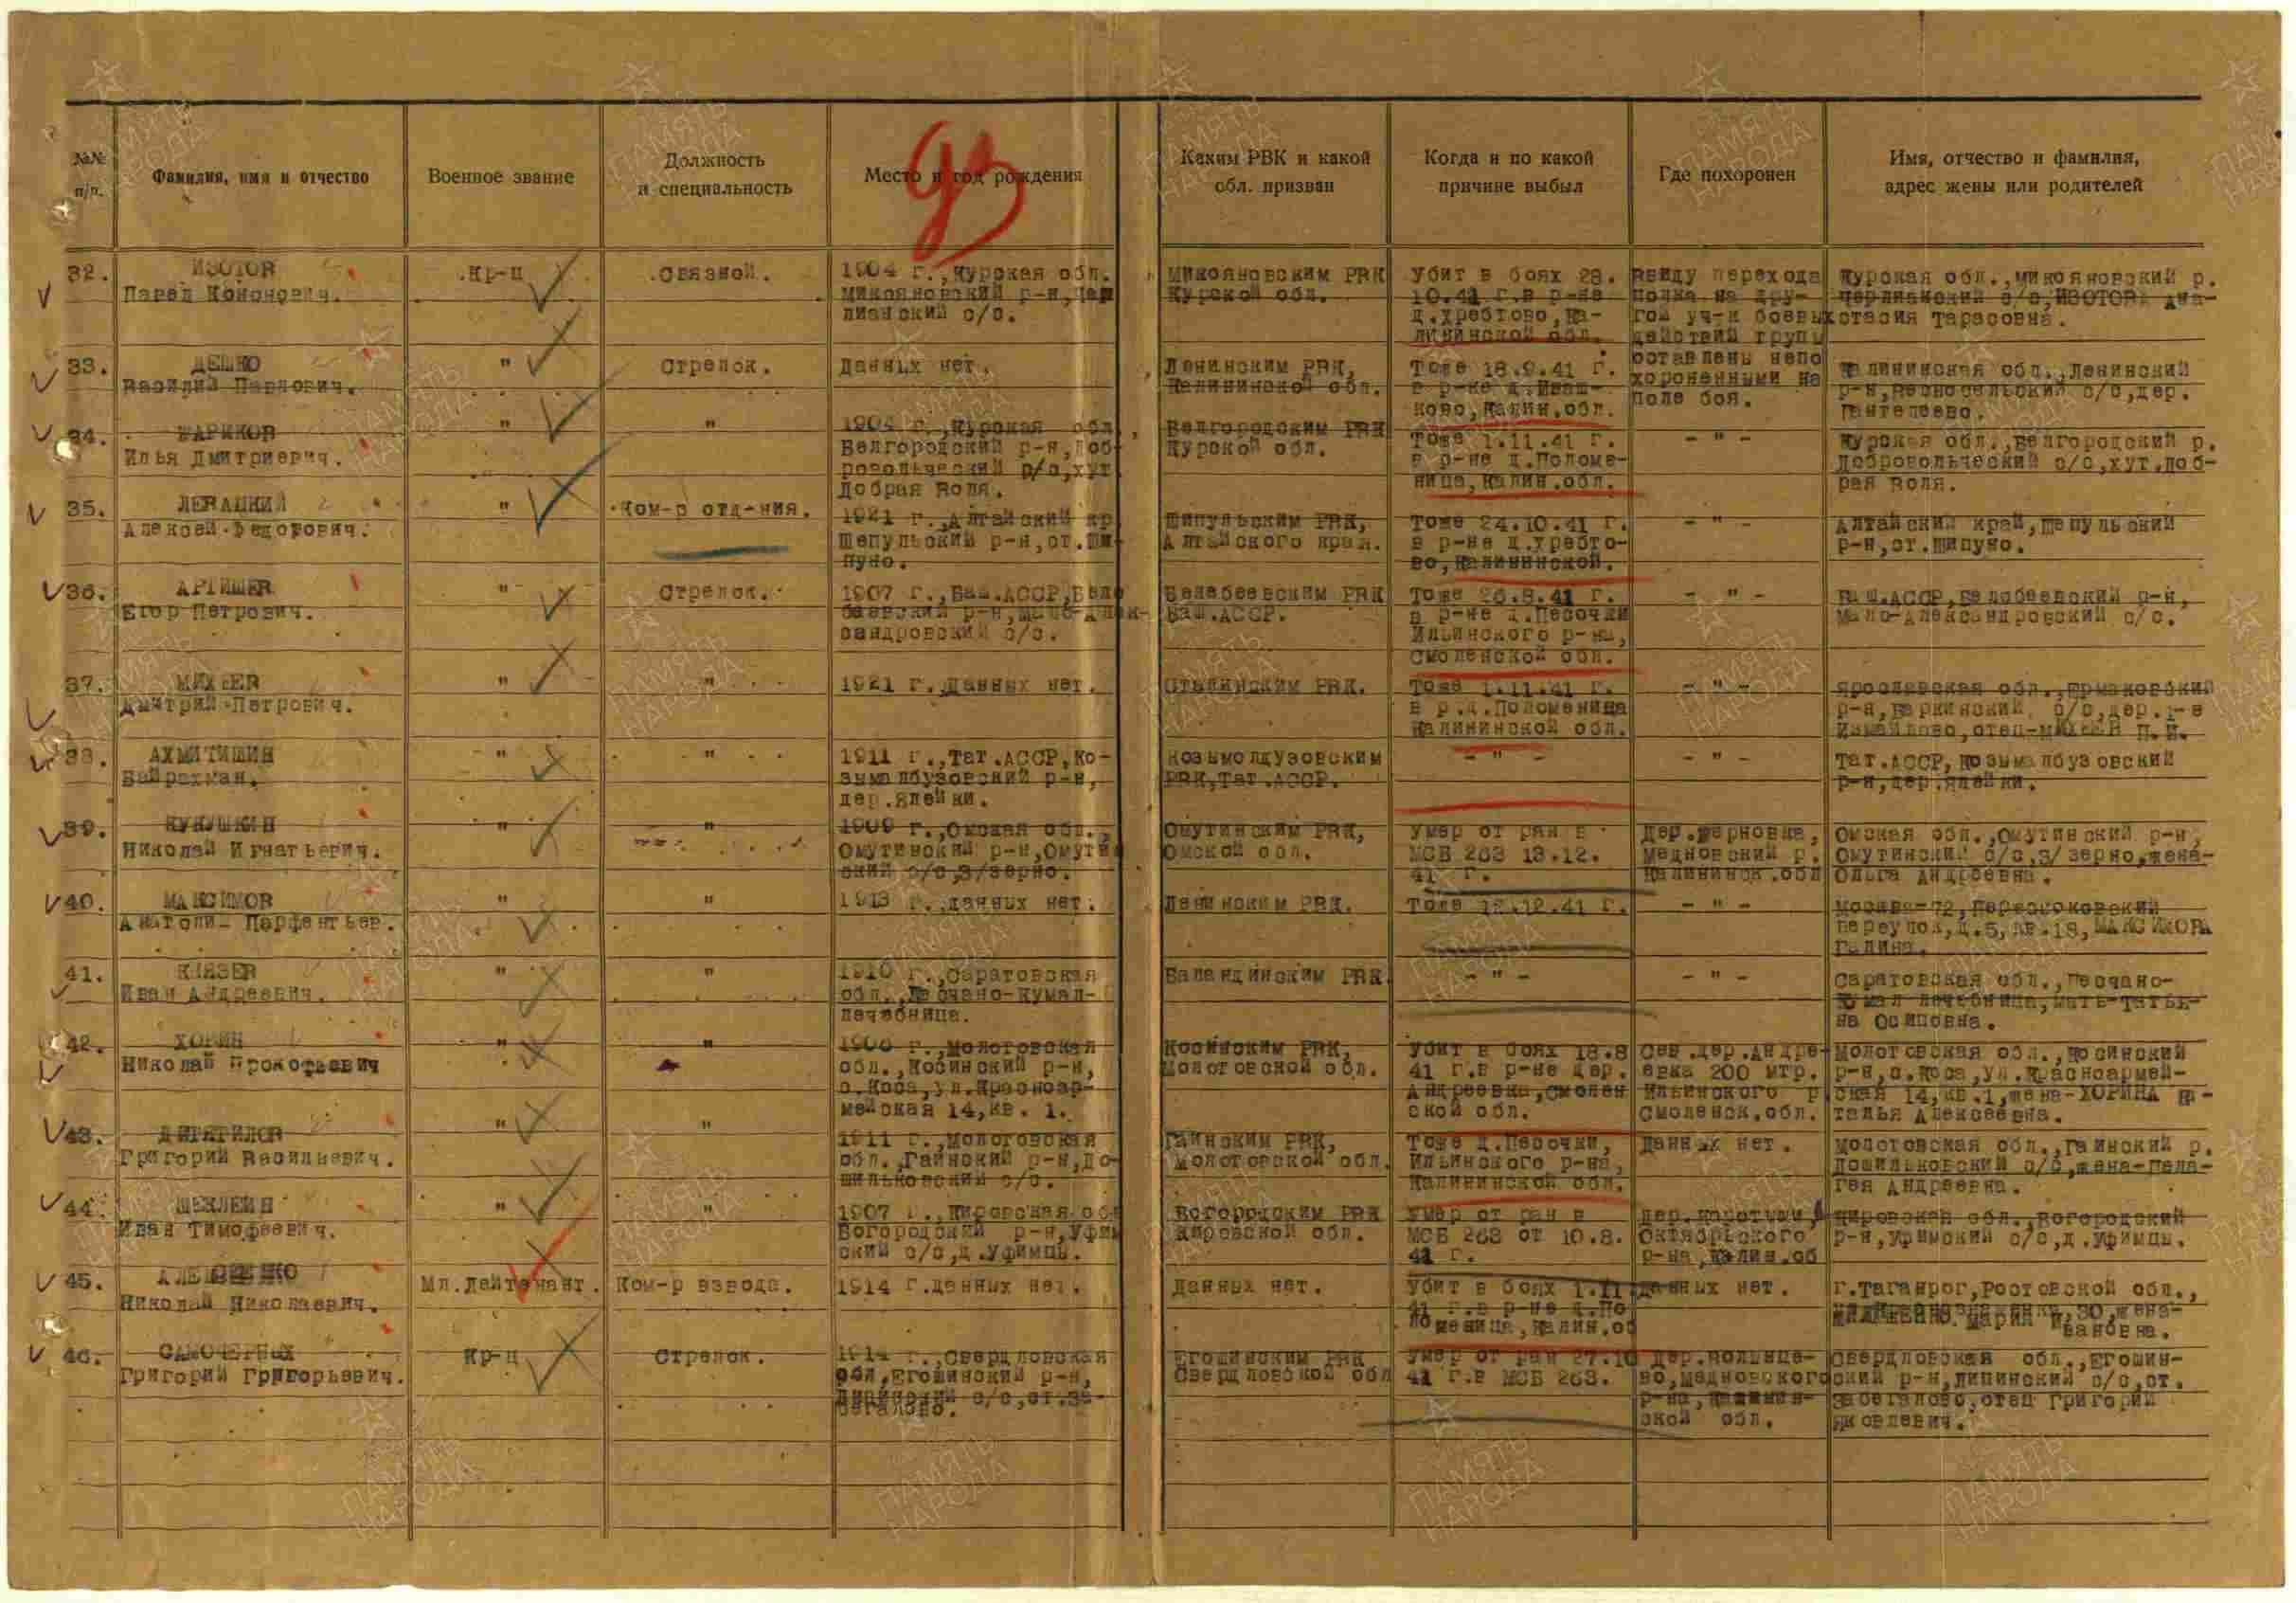 №№ п/п.
Фамилия, имя и отчество
Военное звание
Должность и специальность
Место и год рождения
Каким РВК и какой обл. призван
Когда и по какой причине выбыл
Где похоронен
Имя, отчество и фамилия, адрес жены или родителей
32.
ИЗОТОВ
Павел Кононович.
Кр-ц
Связной.
1904 г., Курская обл.
Микояновский р-н,
лианский с/с.
Микояновским РВК
Курской обл.
Убит в боях 28.
10.41 г.в р-не
д.Хребтово, Ка-
лининской обл.
Ввиду перехода
полка на дру-
гой уч-к боевых
действий групы
оставлены непо
хороненными на
поле боя.
Курская обл., Микояновский р.
с/с, ИЗОТОВА Ана-
стасия Тарасовна.
33.
ДЕШКО
Василий Павлович.
"
Стрелок.
Данных нет.
Ленинским РВК,
Калининской обл.
Тоже 18.9.41 г.
в р-не д.Иваш-
ково, Калин.обл.
Калининская обл., Ленинский
р-н, с/с, дер.
Пантелеево.
34.
ШАРИКОВ
Илья Дмитриевич.
"
"
1904 г., Курская обл
Белгородский р-н, Доб-
ровольческий с/с, хут
Добрая Воля.
Белгородским РВК
Курской обл.
Тоже 1.11.41 г.
в р-не д.Поломе-
ница, Калин.обл.
- " -
Курская обл., Белгородский р.
Добровольческий с/с, хут.Доб-
рая Воля.
35.
ЛЕВАЦКИЙ
Алексей Федорович.
"
Ком-р отд-ния.
1921 г., Алтайский кр
Шепульский р-н, ст.Ши
пуно.
Шипульским РВК,
Алтайского края.
Тоже 24.10.41 г.
в р-не д.Хребто-
во, Калининской.
- " -
Алтайский край, Шепульский
р-н, ст.Шипуно.
36.
АРТИШЕВ
Егор Петрович.
"
Стрелок.
1907 г., Баш.АССР, Беле
беевский р-н, Мало-Алек-
сандровский с/с.
Белебеевским РВК
Баш.АССР.
Тоже 26.8.41 г.
в р-не д.Песочки
Ильинского р-на,
Смоленской обл.
- " -
Баш.АССР, Белебеевский р-н,
Мало-Александровский с/с.
37.
МИХЕЕВ
Дмитрий Петрович.
"
"
1921 г., Данных нет.
Сталинским РВК.
Тоже 1.11.41 г.
в р.д.Поломеница
Калининской обл.
- " -
Ярославская обл., Ермаковский
р-н, с/с, дер.
Измайлово, отец-МИХЕЕВ П.И.
38.
АХМИТИШИН
Байрахман.
"
"
1911 г., Тат.АССР, Ко-
зымалбузовский р-н,
дер.Ялейки.
Козьмолдузовским
РВК, Тат.АССР.
- " -
- " -
Тат.АССР, Козымалбузовский
р-н, дер.Ялейки.
39.
КУКУШКИН
Николай Игнатьевич.
"
"
1909 г., Омская обл.,
Омутинский р-н, Омути
ский с/с, з/зерно.
Омутинским РВК,
Омской обл.
Умер от ран в
МСБ 263 13.12.
41 г.
Дер.Черновка,
Медновский р.
Калининск.обл
Омская обл., Омутинский р-н,
Омутинский с/с, з/зерно, жена-
Ольга Андреевна.
40.
МАКСИМОВ
Анатоли- Парфентьев.
"
"
1913 г., данных нет.
Ленинским РВК.
Тоже 12.12.41 г.
- " -
Москва-72,
переулок, д.5, кв.18, МАКСИМОВА
Галина.
41.
КНЯЗЕВ
Иван Андреевич.
"
"
1910 г., Саратовская
обл., Песчано-Кумал-
лечебница.
Баландинским РВК.
- " -
- " -
Саратовская обл., Песчано-
Кумал лечебница, мать-Татья-
на Осиповна.
42.
ХОРИН
Николай Прокофьевич
"
"
1906 г., Молотовская
обл., Косинский р-н,
с.Коса, ул.Красноар-
мейская 14, кв. 1.
Косинским РВК,
Молотовской обл.
Убит в боях 18.8
41 г.в р-не дер.
Андреевка, Смолен
ской обл.
Сев.дер.Андре-
евка 200 мтр.
Ильинского р
Смоленск.обл.
Молотовская обл., Косинский
р-н, с.Коса, ул.Красноармей-
ская 14, кв.1, жена-ХОРИНА На-
талья Алексеевна.
43.
Григорий Васильевич.
"
"
1911 г., Молотовская
обл., Гаинский р-н, До-
шильковский с/с.
Гаинским РВК,
Молотовской обл.
Тоже д.Песочки,
Ильинского р-на,
Калининской обл.
Данных нет.
Молотовская обл., Гаинский р.
Дошильковский с/с, жена-Пела-
гея Андреевна.
44.
ШЕКЛЕИН
Иван Тимофеевич.
"
"
1907 г., Кировская об
Богородский р-н, Уфим
ский с/с, д.Уфимцы.
Богородским РВК
Кировской обл.
Умер от ран в
МСБ 263 от 10.8.
41 г.
дер.Каротыши,
Октябрьского
р-на, Калин.об
Кировская обл., Богородский
р-н, Уфимский с/с, д.Уфимцы.
45.
Николай Николаевич.
Мл.Лейтенант.
Ком-р взвода.
1914 г.данных нет.
Данных нет.
Убит в боях 1.11
41 г.в р-не д.По
ломеница, Калин.об
Данных нет.
г.Таганрог, Ростовской обл.,
30, жена-
Мария Ивановна.
46.
САМОЧЕРНЫХ
Григорий Григорьевич.
Кр-ц
Стрелок.
1914 г., Свердловская
обл, Егошинский р-н,
Липинский с/с, ст.Зе-
Егошинским РВК
Свердловской обл
Умер от ран 27.10
41 г.в МСБ 263.
Дер.Кольцо-
во, Медновского
р-на, Калинин-
ской обл.
Свердловская обл., Егошин-
ский р-н, Липинский с/с, ст.
отец Григорий
Яковлевич.
ПАМЯТЬ НАРОДА